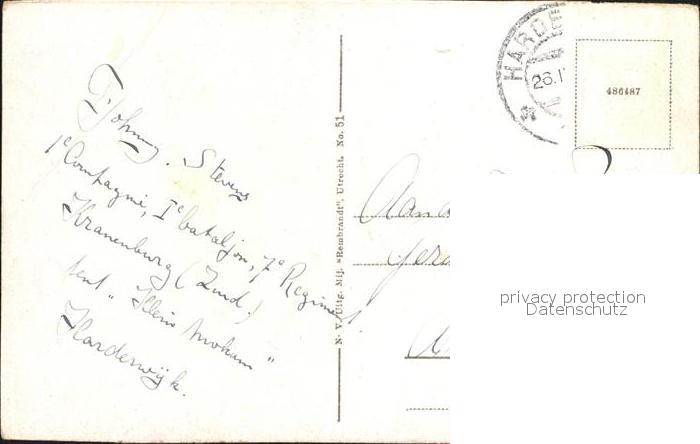 F. Johnny. Stevens
1e Compagnie, Ie bataljon, 7e Regiment
Kranenburg (Zuid.)
tent „ Klein Mokum "
Harderwijk.
N. V. Uitg. Mij. "Rembrandt", Utrecht. No. 51
HARDE
26.I
486487
Aan
privacy protection
Datenschutz